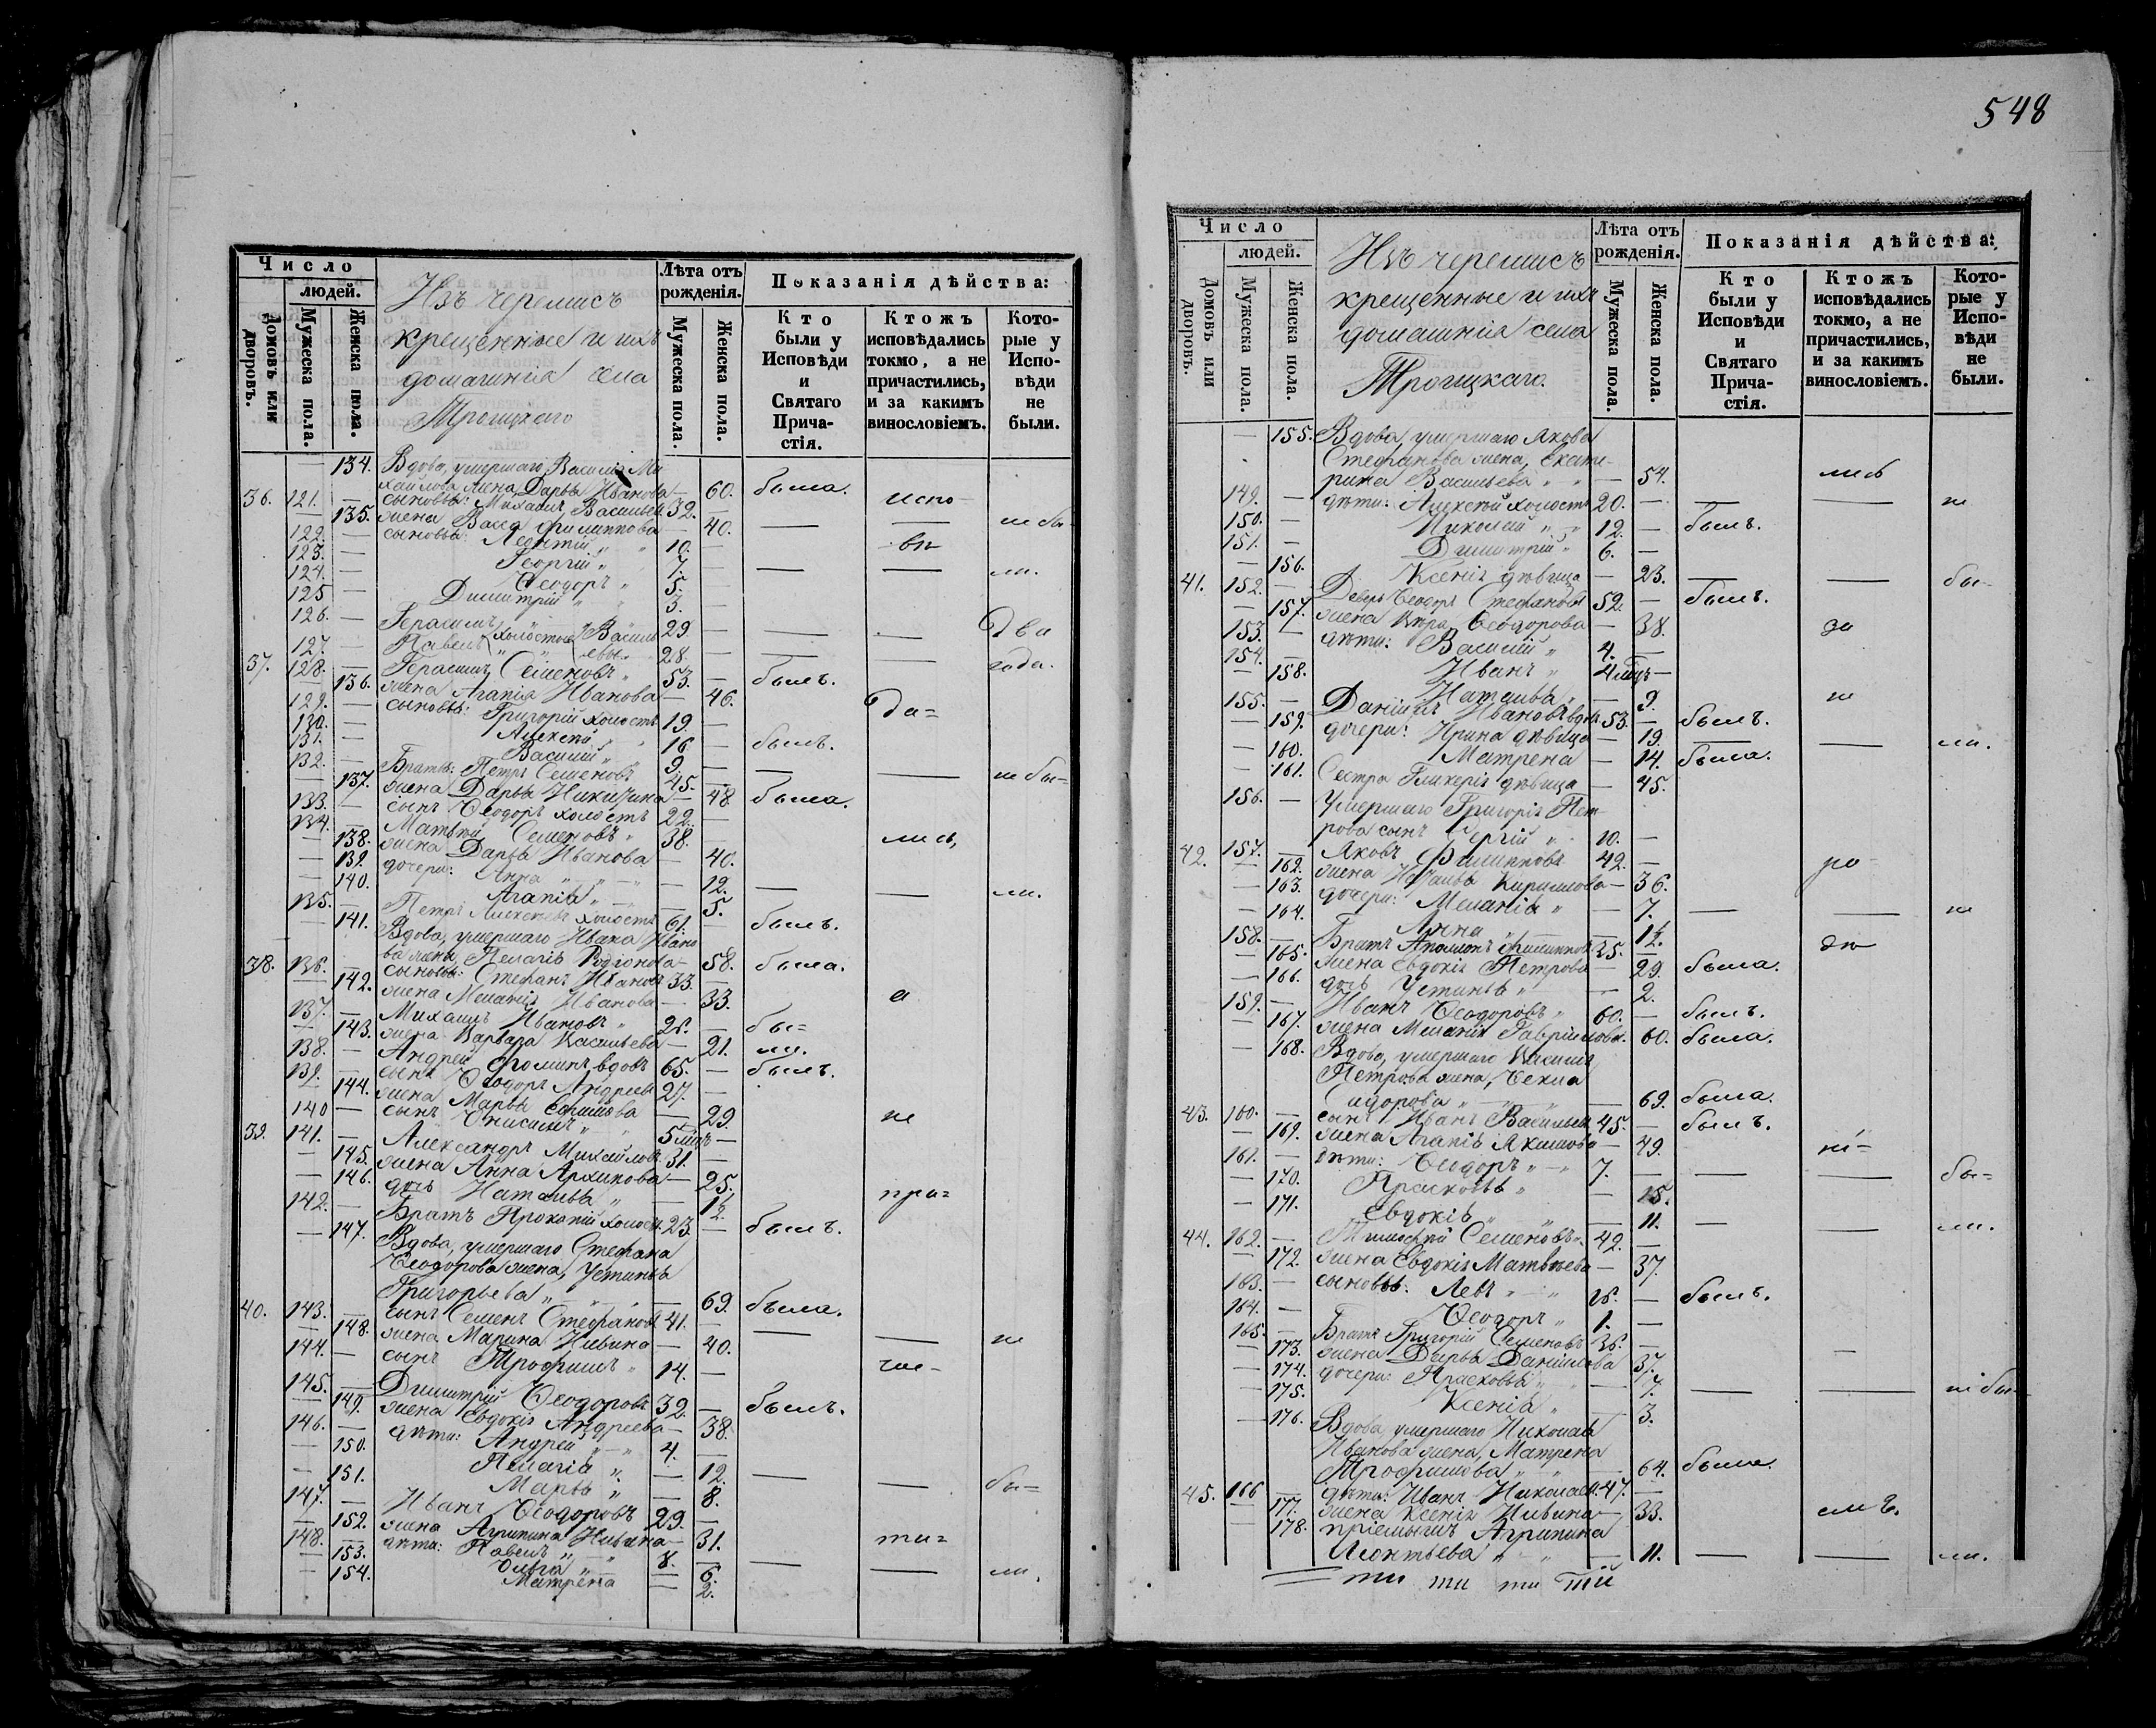 Число
людей.
Домовъ или дворовъ.
Мужеска пола.
Женска пола.
Изъ черемисъ
крещенные и ихъ
домашнія села
Троицкаго
Лѣта отъ
рожденія.
Мужеска пола.
Женска пола.
Показанія дѣйства:
Кто
были у
Исповѣди
и
Святаго
Прича-
стія.
Ктожъ
исповѣдались
токмо, а не
причастились,
и за какимъ
винословіемъ.
Кото-
рые у
Испо-
вѣди
не
были.
— 134. Вдова, умершаго Василія Ми
хайлова жена Дарья Иванова — 60. была.
36. 121. — сыновья: Михаилъ Васильевъ 32. — испо-
— 135. жена Васса Филиппова — 40. — — не бы-
122. — сыновья: Леонтій " 10. — вѣ
123. — Георгій " 7. —
124. — Ѳеодоръ " 5. — — ли.
125 — Димитрій " 3. —
126. — Герасимъ 29. — — — Два
127. — Павелъ холостые Василь евы 28. — — —
37. 128. — Герасимъ Семеновъ " 53. — былъ. года.
— 136. жена Агапія Иванова — 46.
129. — сыновья: Григорій холостъ 19 — да=
130. — Алексѣй " 16 — былъ.
131. — Василій " 9. —
132. — Братъ: Петръ Семеновъ 45. — — — не бы=
— 137. жена Дарья Никитина — 48 была.
133. — сынъ Ѳеодоръ холостъ 22. —
134. — Матвѣй Семеновъ " 38. — лись,
— 138. жена Дарья Иванова — 40.
— 139. дочери: Анна " — 12. — — ли.
— 140. Агапія " — 5.
135. — Петръ Алексѣевъ холостъ 61. — былъ.
— 141. Вдова, умершаго Ивана Ивано
ва жена, Пелагія Родіонова — 58. была.
38. 136. — сыновья: Стефанъ Ивановъ 33. —
— 142. жена Меланія Иванова — 33. а
137. — Михаилъ Ивановъ " 26. — бы=
— 143. жена Варвара Васильева — 21. ли.
138. — Андрей Ѳоминъ вдовъ 65. — былъ.
139. — сынъ Ѳеодоръ Андреевъ 27. —
— 144. жена Марья Ефимова — 29.
140 — сынъ Онисимъ " 5 мцъ — не
39. 141. — Александръ Михайловъ 31. —
— 145. жена Анна Архипова — 25.
— 146. дочь Наталья " — 1/2. при=
142. — Братъ Прокопій холостъ 23. — былъ.
— 147. Вдова, умершаго Стефана
Ѳеодорова жена, Устинья
Григорьева " — 69. была.
40. 143. — сынъ Семенъ Стефановъ 41. — — — не
— 148. жена Марина Ильина — 40.
144. — сынъ Трофимъ " 14. — час-
145. — Димитрій Ѳеодоровъ 32. — былъ.
— 149. жена Евдокія Андреева — 38.
146. — дѣти: Андрей " 4. —
— 150. Пелагія " — 12. — — бы=
— 151. Марья " — 8.
147. — Иванъ Ѳеодоровъ 29. —
— 152. жена Агрипина Ильина — 31. ти=
148. — дѣти: Павелъ " 8. —
— 153. Ольга " — 6. — — ли.
— 154. Матрена — 2.
548
Число
людей.
Домовъ или дворовъ.
Мужеска пола.
Женска пола.
Изъ черемисъ
крещенные и ихъ
домашнія села
Троицкаго.
Лѣта отъ
рожденія.
Мужеска пола.
Женска пола.
Показанія дѣйства:
Кто
были у
Исповѣди
и
Святаго
Прича-
стія.
Ктожъ
исповѣдались
токмо, а не
причастились,
и за какимъ
винословіемъ.
Кото-
рые у
Испо-
вѣди
не
были.
— 155. Вдова, умершаго Якова
Стефанова жена, Екате-
рина Васильева " — 54. лись
149. — дѣти: Алексѣй холостъ 20. — — — не
150. — Николай " 12. — былъ.
151. — Димитрій " 6. —
— 156. Ксенія дѣвица — 23. — — бы-
41. 152. — Деверь Ѳеодоръ Стефановъ 52. — былъ.
— 157. жена Вѣра Ѳеодорова — 38. за
153. — дѣти: Василій " 4. —
154. — Иванъ " 4 мцъ —
— 158. Наталья " — 9. не
155. — Даніилъ Ивановъ вдовъ 53. — былъ.
— 159. дочери: Ирина дѣвица — 19. — — ли.
— 160. Матрена — 14. была.
— 161. Сестра Гликерія дѣвица — 45.
156. — Умершаго Григорія Пет-
рова сынъ Сергій " 10. —
42. 157. — Яковъ Филипповъ 42. — ра-
— 162. жена Наталья Кириллова — 36.
— 163. дочери: Меланія " — 7. — — не
— 164. Анна — 1/2.
158. — Братъ Аполлонъ Филипповъ 25. — дѣ
— 165. жена Евдокія Петрова — 29. была.
— 166. дочь Устинья " — 2.
159. — Иванъ Ѳеодоровъ " 60. — былъ.
— 167. жена Меланія Гавриилова 60. была.
— 168. Вдова, умершаго Василія
Петрова жена, Ѳекла
Сидорова " — 69. была.
43. 160. — сынъ Иванъ Васильевъ 45. — былъ.
— 169. жена Агапія Якимова — 49. ні=
161. — дѣти: Ѳеодоръ " 7. — — — бы=
— 170. Прасковья " — 15.
— 171. Евдокія " — 11. — — ли.
44. 162. — Тимоѳей Семеновъ " 42. —
— 172. жена Евдокія Матвѣева — 37.
163. — сыновья: Левъ " 16. — былъ.
164. — Ѳеодоръ " 1. —
165. — Братъ Григорій Семеновъ 36. —
— 173. жена Дарья Даніилова 37. —
— 174. дочери: Прасковья " — 7. — — не бы-
— 175. Ксенія " — 3.
— 176. Вдова, умершаго Николая
Иванова жена, Матрена
Трофимова " — 64. была.
45. 166 — дѣти: Иванъ Николаевъ 47. —
— 177. жена Ксенія Ильина — 33. емъ.
— 178. пріемышъ Агрипина
Леонтьева " — 11. — — ли.